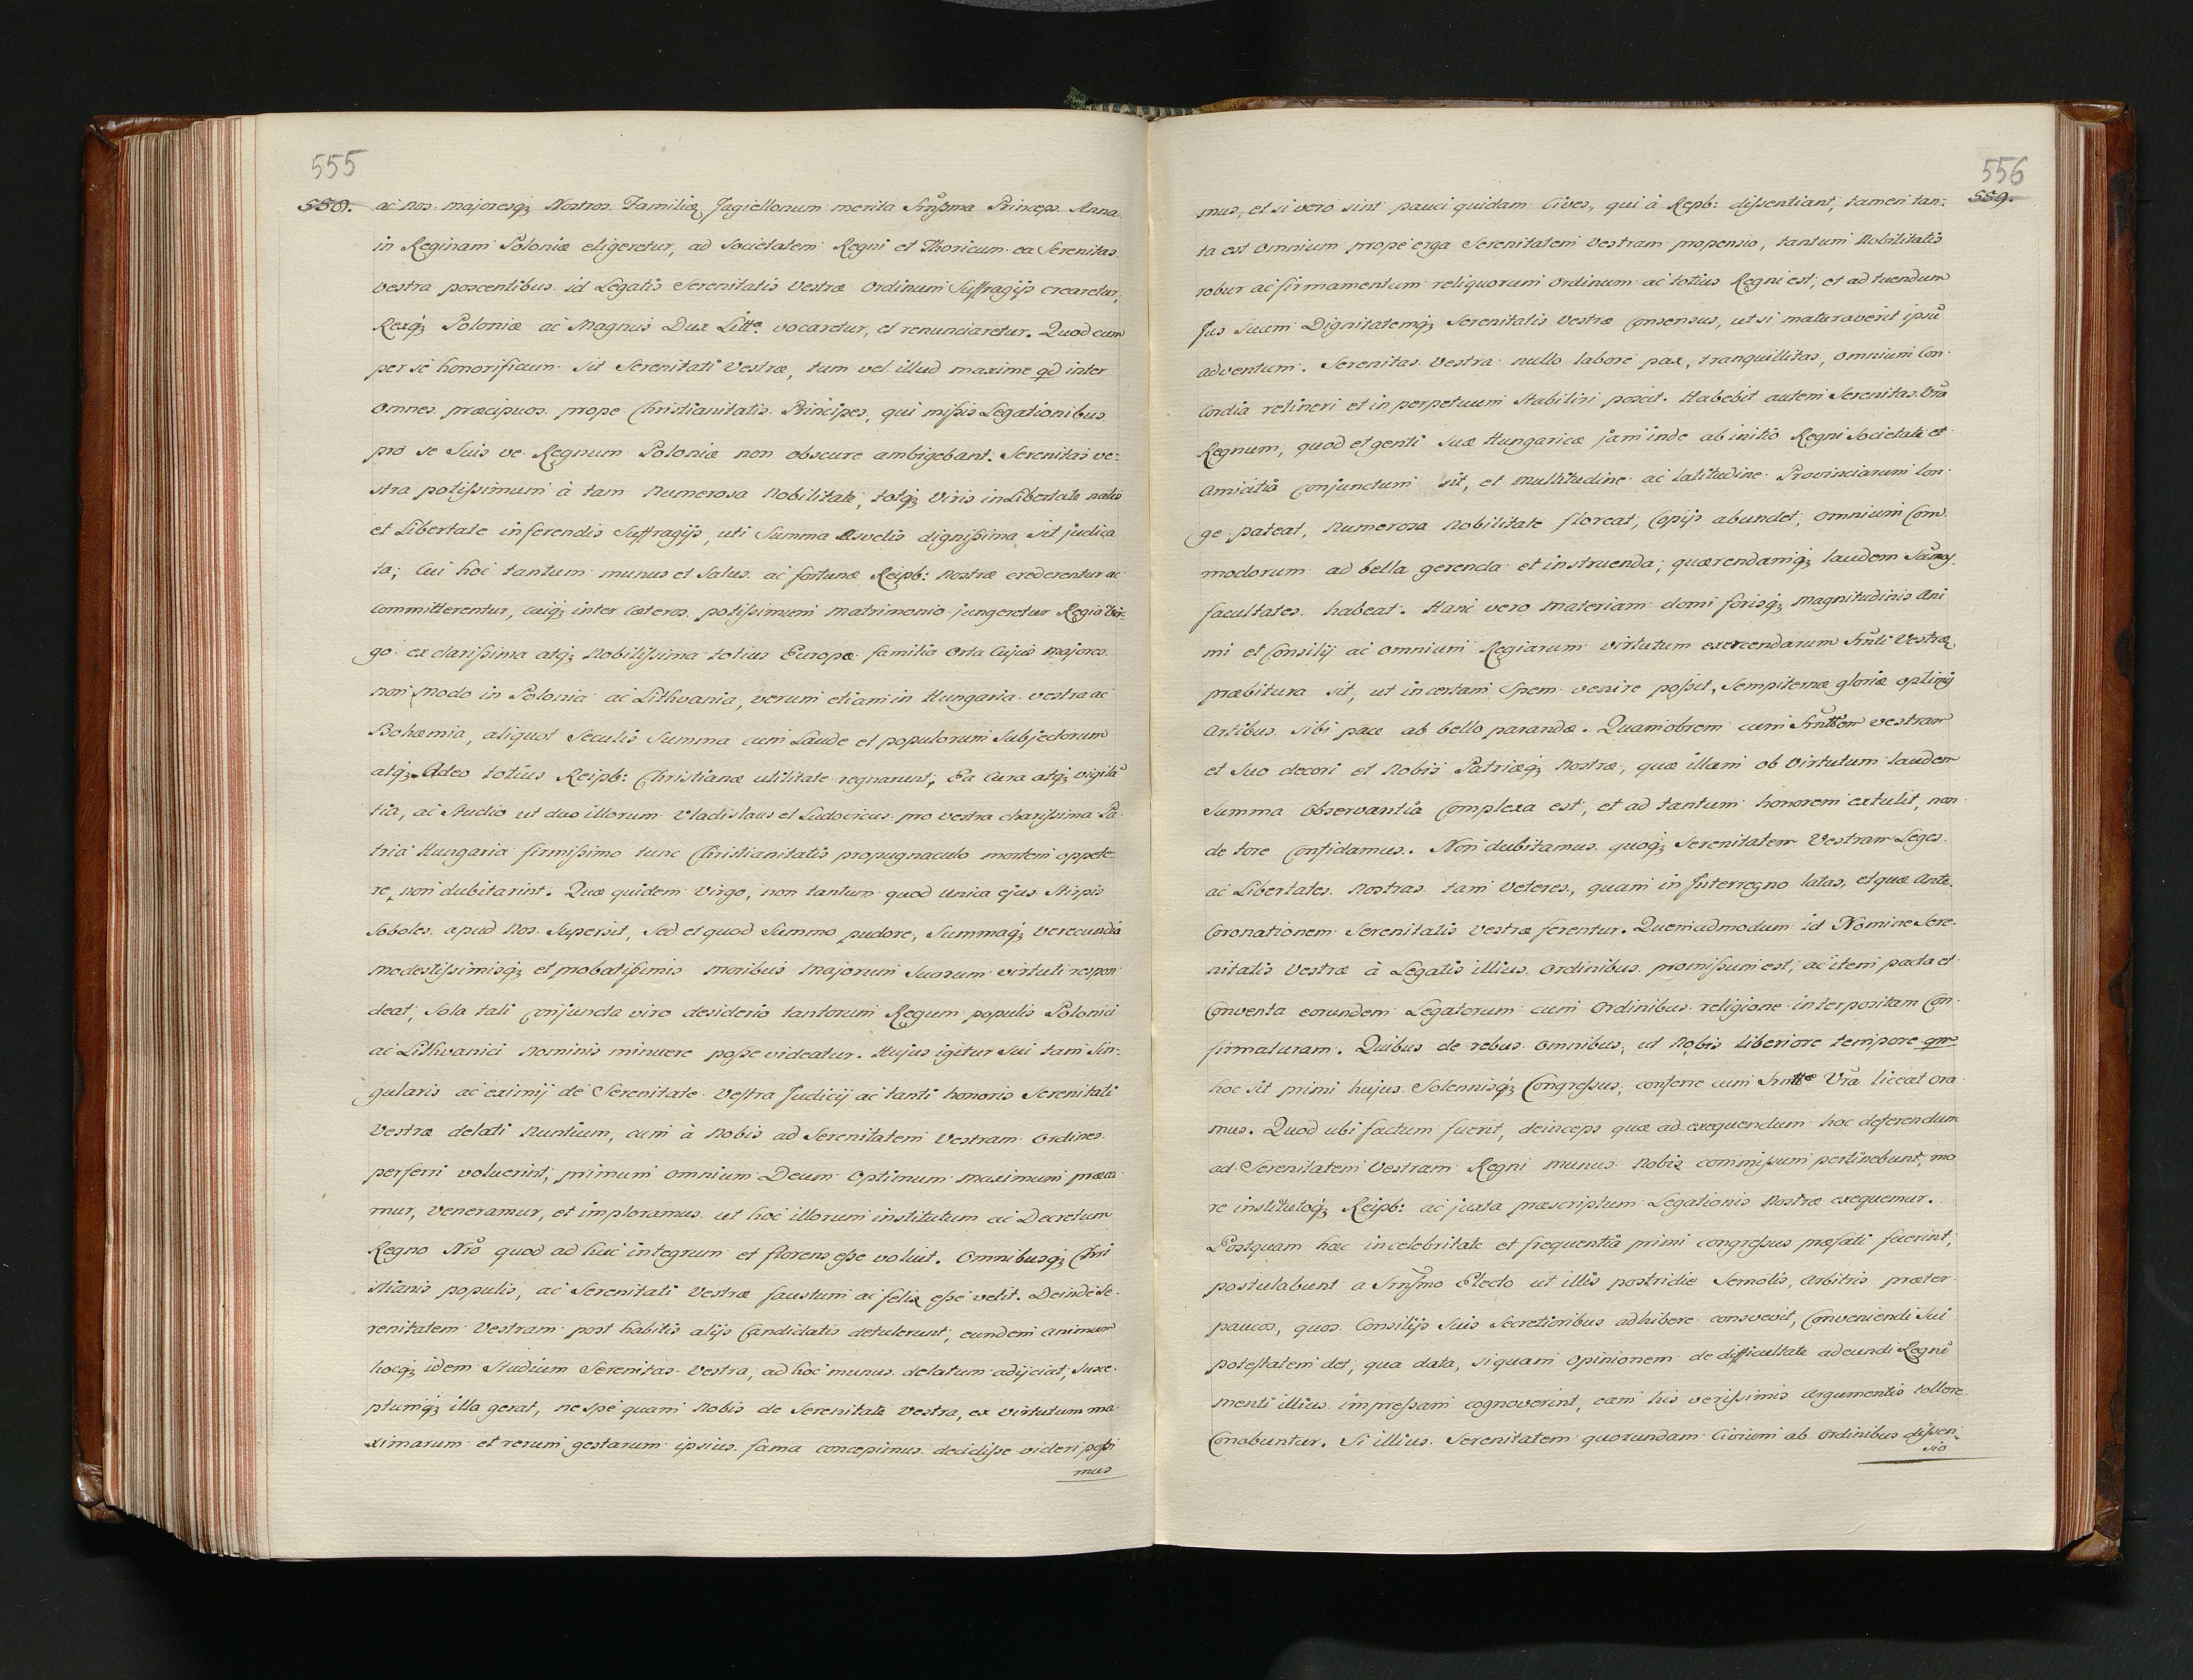 555
558. ac nos majoresq; Nostros Familiæ Jagiellonum merita Srñssma Princeps Anna
in Reginam Poloniæ eligeretur, ad Societatem Regni et Thoricum ea Serenitas
vestra poscentibus id Legatis Serenitatis Vestræ Ordinum Suffragijs crearetur,
Rexq; Poloniæ ac Magnus Dux Litt͠e vocaretur, et renunciaretur. Quod cum
per se honorificum sit Serenitati Vestræ, tum vel illud maxime qd inter
Omnes præcipuos prope Christianitatis Principes, qui missis Legationibus
pro se Suis ve Regnum Poloniæ non obscure ambigebant: Serenitas ve=
stra potissimum à tam Numerosa Nobilitate, totq; Viris in Libertate natis
et Libertate inferendis Suffragijs, uti Summa dignissima sit judica
ta; Cui hoc tantum munus et Salus ac fortunæ Reipb: Nostræ crederentur ac
committerentur, cuiq; inter cæteros potissimum matrimonio jungeretur Regia Vir=
go ex clarissima atq; Nobilissima totius Europæ familia Orta Cujus majores
non modo in Polonia ac Lithvania, verum etiam in Hungaria vestra ac
Bohæmia, aliquot Seculis Summa cum Laude et populorum Subjectorum
atq; Adeo totius Reipb: Christianæ utilitate regnarunt; Ea cura atq; vigilã
tia, ac Studio ut duo illorum Vladislaus et Ludovicus pro vestra charissima Pa
tria Hungaria firmissimo tunc Christianitatis propugnaculo mortem oppete=
re, non dubitarint. Quæ quidem virgo, non tantum quod unica ejus Stirpis
Soboles apud Nos Supersit, Sed et quod Summo pudore, Summaq; verecundia
modestissimisq; et probatissimis moribus Majorum Suorum virtuti respon
deat, Sola tali conjuncta viro desiderio tantorum Regum populis Polonici
ac Lithvanici Nominis minuere posse videatur. Hujus igitur Sui tam Sin=
gularis ac eximij de Serenitate Vestra Judicij ac tanti honoris Serenitati
Vestræ delati Nuntium, cum à Nobis ad Serenitatem Vestram Ordines
perferri voluerint, primum omnium Deum Optimum Maximum præca
mur, veneramur, et imploramus ut hoc illorum institutum ac Decretum
Regno Nr̃o quod ad huc integrum et florens esse voluit. Omnibusq; Chri
stianis populis, ac Serenitati Vestræ faustum ac felix esse velit. Deinde Se=
renitatem Vestram post habitis alijs Candidatis detulerunt, eundem animum
hocq; idem Studium Serenitas Vestra, ad hoc munus delatum adijciat, Susce=
ptumq; illa gerat, ne spe quam Nobis de Serenitate Vestra, ex virtutum ma
ximarum et rerum gestarum ipsius fama concepimus decidisse videri possi
mus
556
559.
mus, et si vero sint pauci quidam Cives, qui à Repb: dissentiant, tamen tan=
ta est Omnium prope erga Serenitatem Vestram propensio, tantum Nobilitatis
robur ac firmamentum reliquorum Ordinum ac totius Regni est, et ad tuendum
Jus Suum Dignitatemq; Serenitatis Vestræ Consensus, ut si maturaverit ipsũ
adventum. Serenitas Vestra nullo labore pax, tranquillitas, Omnium Con
cordia retineri et in perpetuum Stabiliri poscit. Habebit autem Serenitas Vr̃a
Regnum, quod et genti suæ Hungaricæ jam inde ab initio Regni Societate et
Amicitia Conjunctum sit, et Multitudine ac latitudine Provinciarum Lon
ge pateat, Numerosa Nobilitate floreat, Copijs abundet, omnium Com
modorum ad bella gerenda et instruenda, quærendamq; laudem
facultates habeat. Hanc vero Materiam domi forisq; Magnitudinis Ani
mi et Consilij ac omnium Regiarum virtutum exercendarum Srñti Vestræ
præbitura sit, ut in certam Spem venire possit, Sempiternæ gloriæ optimis
Artibus sibi pace ab bello parandæ. Quamobrem cum Srñttem vestram
et Suo decori et Nobis Patriæq; Nostræ, quæ illam ob Virtutum laudem
Summa Observantia Complexa est, et ad tantum honorem extulit, non
de fore Confidamus. Non dubitamus quoq; Serenitatem Vestram Leges
ac Libertates Nostras tam Veteres, quam in Interregno latas, et quæ Ante
Coronationem Serenitatis Vestræ ferentur. Quemadmodum id Nomine Sere=
nitatis Vestræ à Legatis illius Ordinibus promissum est, ac item pacta et
Conventa eorundem Legatorum cum Ordinibus religione interpositam Con
firmaturam. Quibus de rebus Omnibus, ut Nobis liberiore tempore qm
hoc sit primi hujus Solennisq; Congressus, conferre cum Srñtte Vr̃a liceat ora
mus. Quod ubi factum fuerit, deinceps quæ ad exequendum hoc deferendum
ad Serenitatem Vestram Regni munus Nobis commissum pertinebunt, mo
re institutoq; Reipb: ac juxta præscriptum Legationis Nostræ exequemur.
Postquam hæc in celebritate et frequentia primi congressus præfati fuerint,
postulabunt a Srñsmo Electo ut illis postridie Semotis, Arbitris præter
paucos, quos Consilijs Suis Secretioribus adhibere consvevit, Conveniendi Sui
potestatem det, qua data, si quam Opinionem de difficultate adeundi Regni
menti illius impressam cognoverint, eam his verissimis Argumentis tollere
Conabuntur. Si illius Serenitatem quorundam Civium ab Ordinibus dissen=
sio